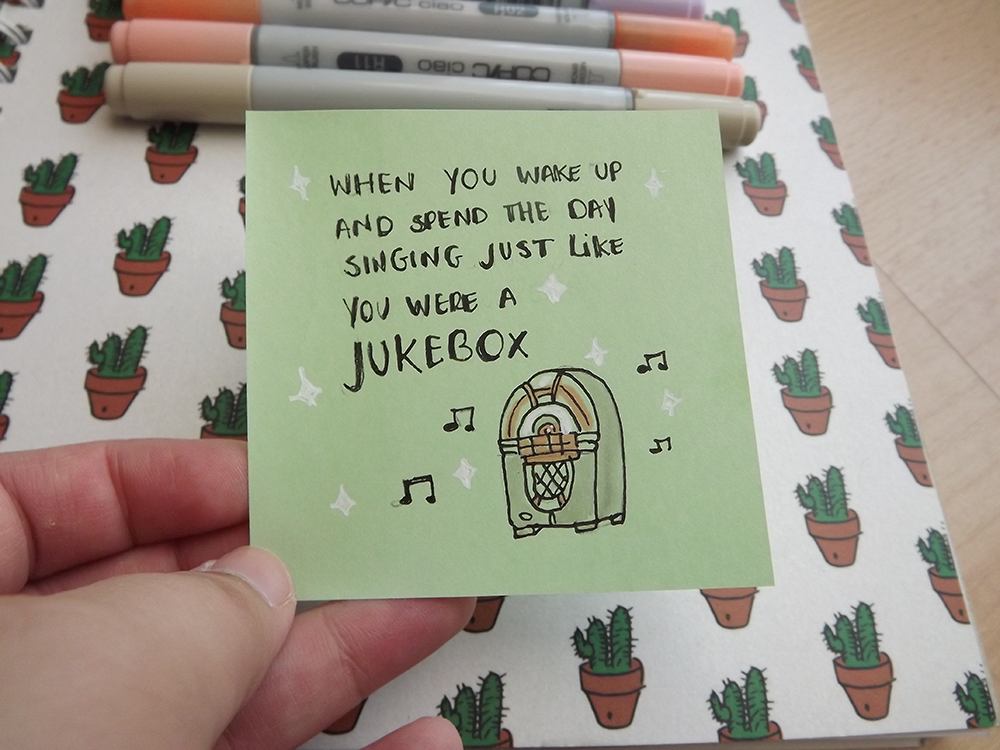 COPIC ciao
COPIC ciao
WHEN YOU WAKE UP
AND SPEND THE DAY
SINGING JUST LiKE
YOU WERE A
JUKEBOX